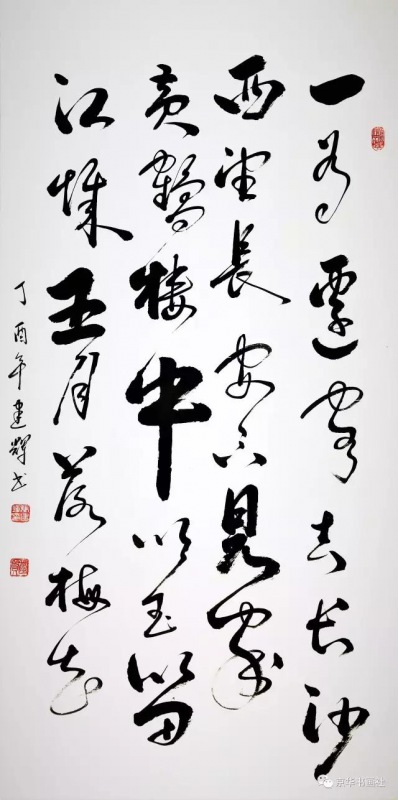 一為遷客去长沙
西望長安不見家
黄鶴樓中吹玉笛
江城五月落梅花
丁酉年建輝书
京华书画社